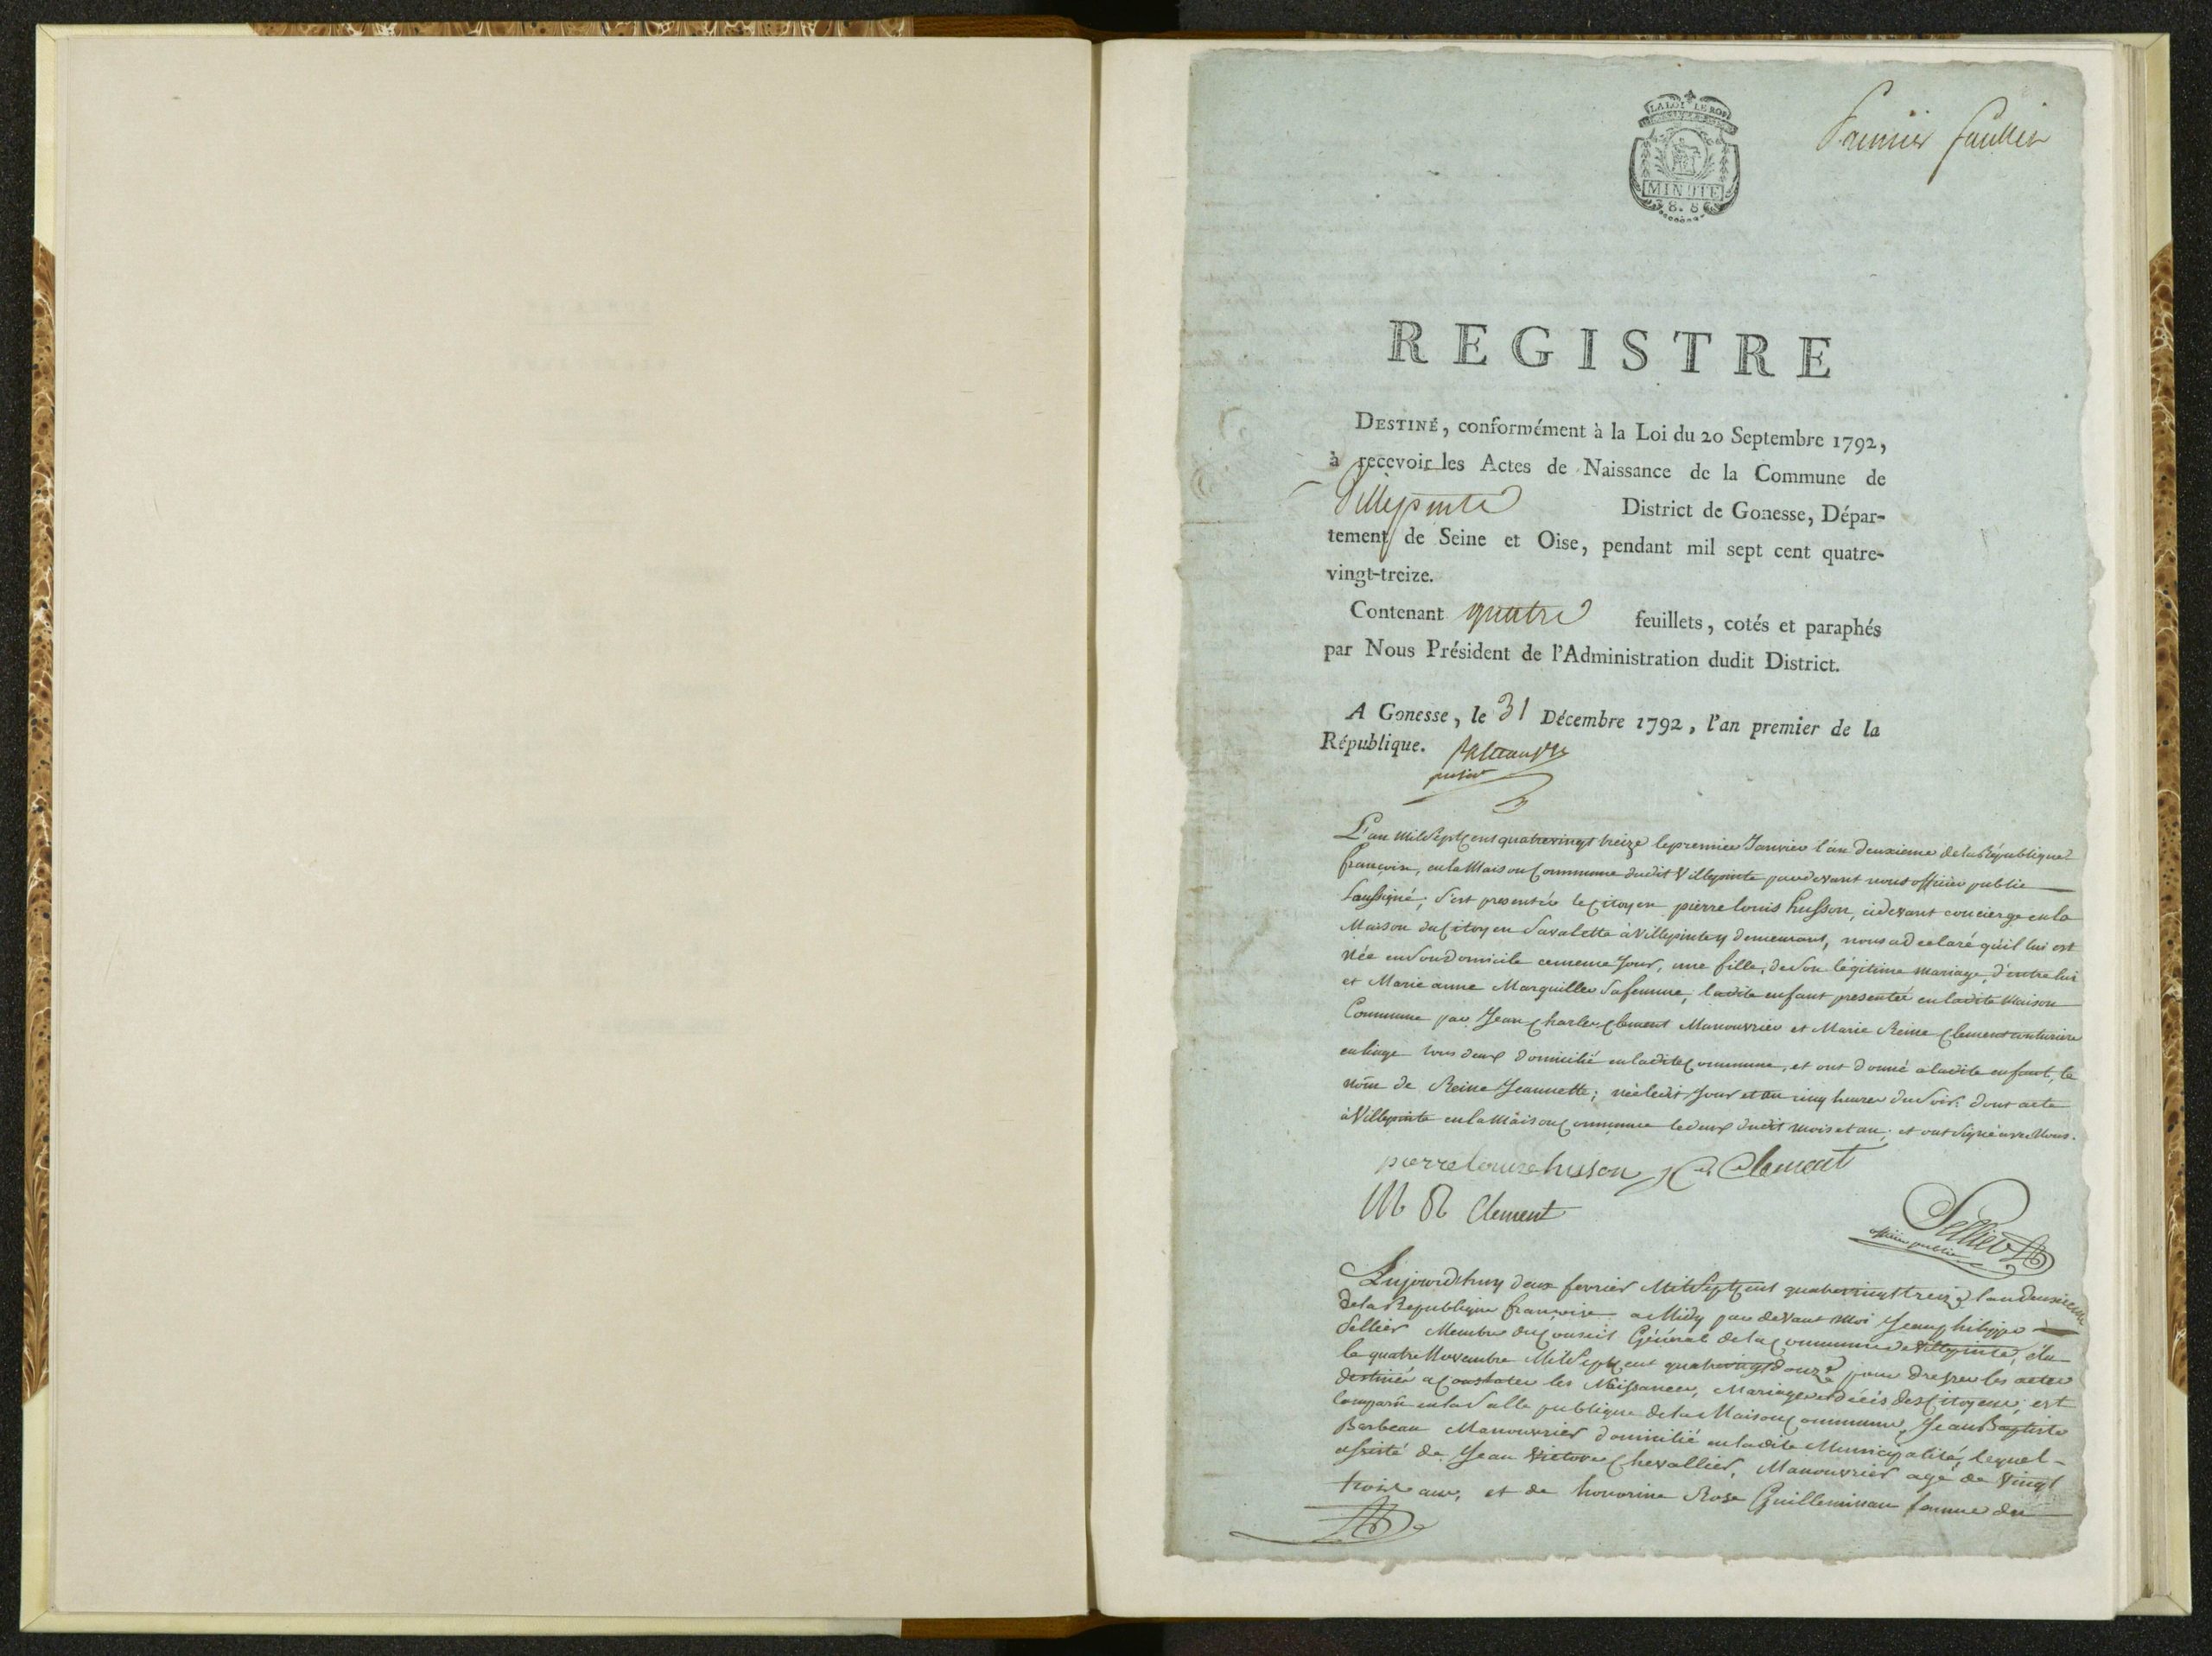 Premier feuillet
LA LOI LE ROI
MINUTE
REGISTRE
DESTINÉ, conformément à la Loi du 20 Septembre 1792,
à recevoir les Actes de Naissance de la Commune de
Villepinte District de Gonesse, Dépar-
tement de Seine et Oise, pendant mil sept cent quatre-
vingt-treize.
Contenant quatre feuillets, cotés et paraphés
par Nous Président de l'Administration dudit District.
A Gonesse, le 31 Décembre 1792, l'an premier de la
République.
L'an Mil Sept Cens quatrevingt treize le premier Janvier l'an deuxieme de la République
françoise, en la Maison Commune dudit Villepinte pardevant nous officier public
Soussigné, S'est presentée le Citoyen pierre louis husson, cidevant concierge en la
Maison du Citoyen Savalette à Villepinte y demeurant, nous a declaré quil lui est
Née en Son Domicile ce meme Jour, une fille, de Son légitime mariage, d'entre lui
et Marie anne Marguiller Sa femme, ladite enfant presentée en ladite Maison
Commune par Jean Charles Clement Manouvrier et Marie Reine Clement couturiere
en linge tous deux domicilié en ladite Commune, et ont donné a ladite enfant, le
nom de Reine Jeannette; née ledit Jour et an cinq heures du Soir. dont acte
à Villepinte en la Maison Commune le deux dudit mois et an, et ont Signé avec Nous.
pierre louis husson J C Clement
M R Clement
Sellier
officier public
Aujourdhuy deux fevrier Mil Sept Cent quatrevingt treize l'an Deuxieme
de la Republique françoise a Midy par devant Moi Jean philippe
Sellier Membre du Conseil Général de la Commune de Villepinte, élu
le quatre Novembre Mil Sept Cent quatrevingt douze pour dresser les actes
destinés a Constater les Naissances, Mariages et décès des Citoyens; est
Comparû en la Salle publique de la Maison Commune, Jean Baptiste
Barbeau Manouvrier domicilié en ladite Municipalité, lequel
assisté de Jean Victore Chevallier, Manouvrier agé de Vingt
trois ans, et de honorine Rose Guilleminau femme du